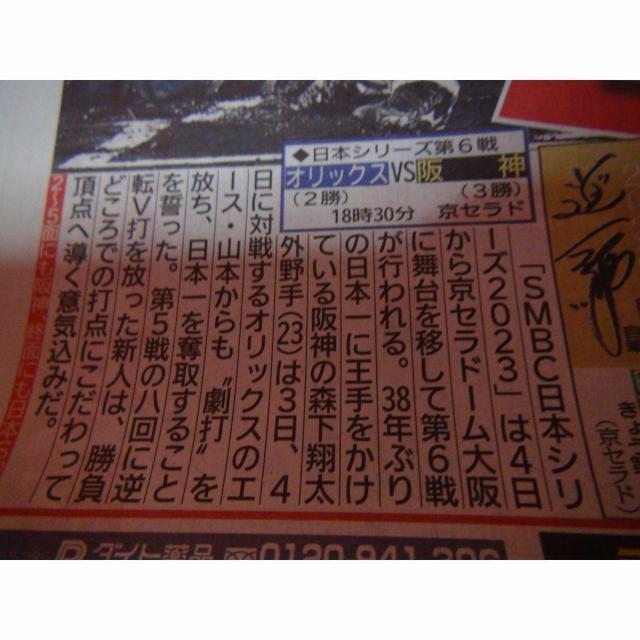 ◆日本シリーズ第6戦
オリックスVS阪神
(2勝)
(3勝)
18時30分 京セラド
「SMBC日本シリ
ーズ2023」は4日
から京セラドーム大阪
に舞台を移して第6戦
が行われる。38年ぶり
の日本一に王手をかけ
ている阪神の森下翔太
外野手(23)は3日、4
日に対戦するオリックスのエ
ース・山本からも〝劇打〟を
放ち、日本一を奪取すること
を誓った。第5戦の八回に逆
転V打を放った新人は、勝負
どころでの打点にこだわって
頂点へ導く意気込みだ。
2〜5面にも阪神、終面にも日本S
きょ
(京セラド)
ダイト薬品 0120-941-396